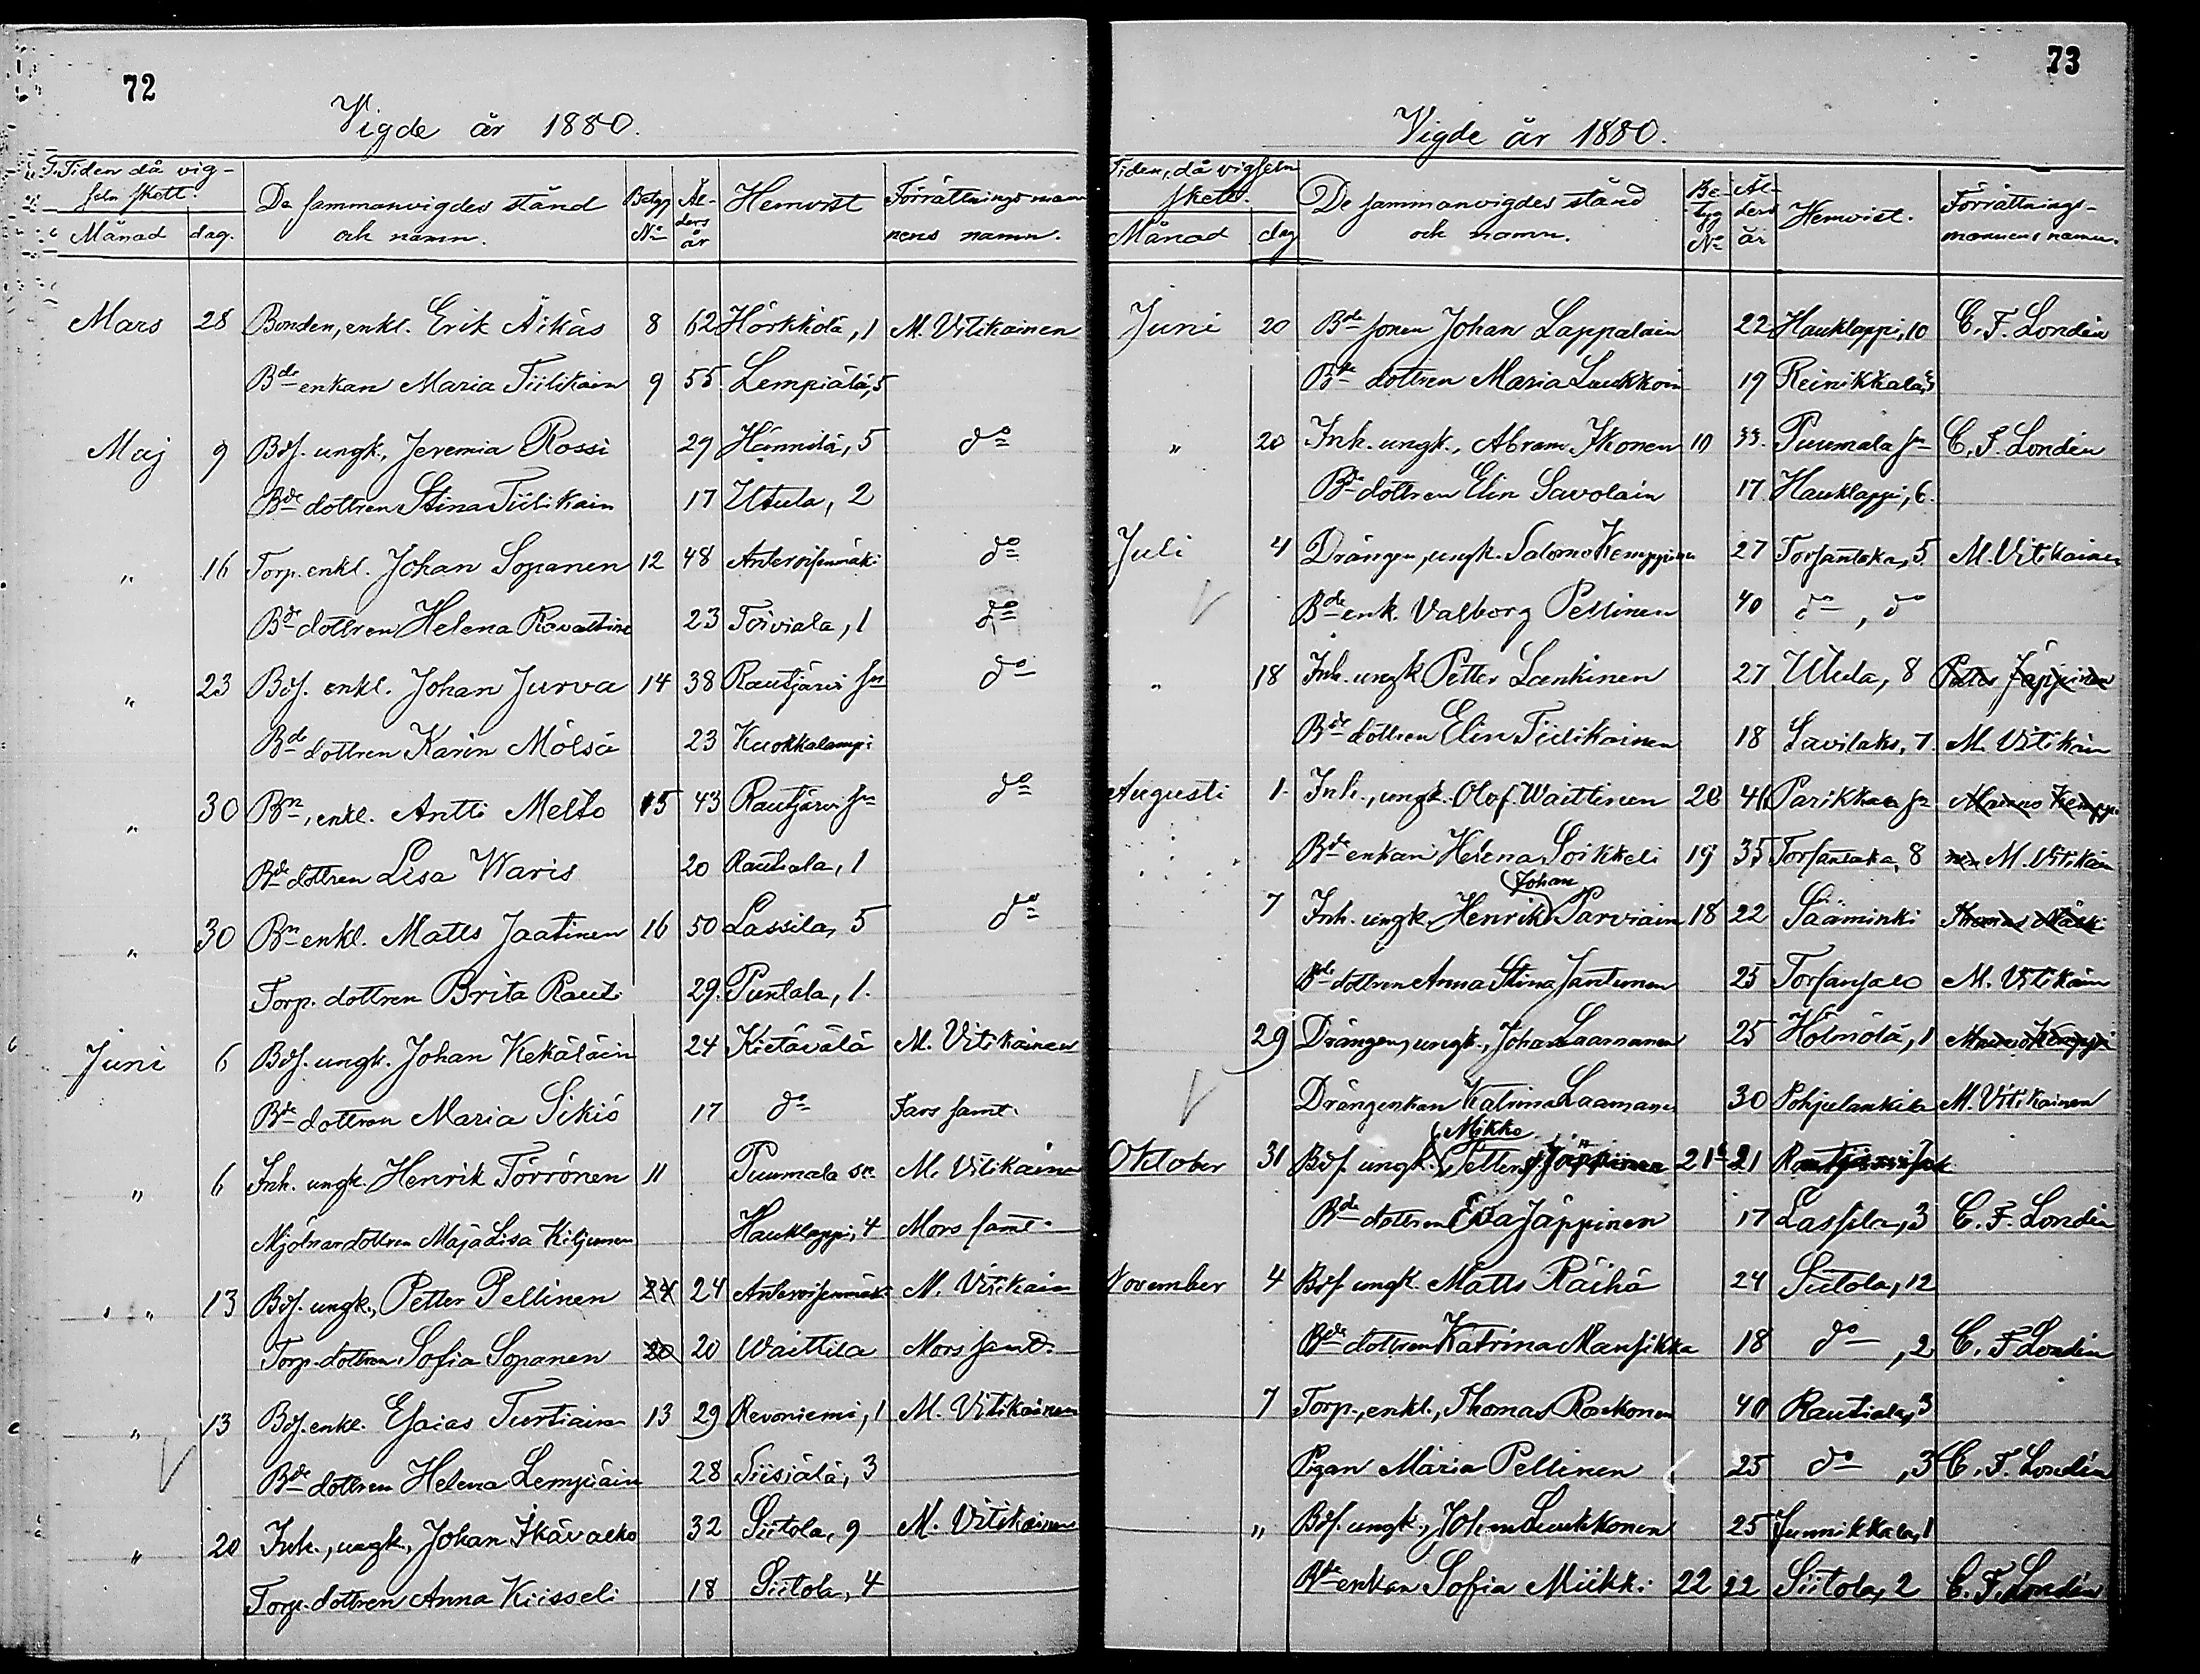 72
Vigde år 1880.
Tiden då vig-
seln skett.
Månad dag.
De sammanvigdes stånd
och namn.
Betyg
No
Ål-
ders
år
Hemvist
Förrättningsman
nens namn.
Mars 28 Bonden, enkl. Erik Äikäs 8 62 Hörkkölä, 1 M. Vitikainen
Bde enkan Maria Tiilikain 9 55 Lempiälä, 5
Maj 9 Bds. ungk., Jeremia Rossi 29 Hännilä, 5 do
Bde dottren Stina Tiilikain 17 Utula, 2
" 16 Torp. enkl. Johan Sopanen 12 48 do
Bde dottren Helena 23 Toiviala, 1 do
" 23 Bds. enkl. Johan Jurva 14 38 Rautjärvi sn do
Bde dottren Karin Mölsä 23 Kuokkalampi
" 30 Bn, enkl. Antti Melto 15 43 Rautjärvi sn do
Bde dottren Lisa Waris 20 Rautiala, 1
" 30 Bn enkl. Matts Jaatinen 16 50 Lassila, 5 do
Torp. dottren Brita Rauti 29. Puntala, 1.
Juni 6 Bds. ungk. Johan Kekäläin 24 Kietävälä M. Vitikainen
Bde dottren Maria Sikiö 17 do Fars samt.
" 6 Inh. ungk. Henrik Törrönen 11 Puumala sn. M. Vitikainen
Mjölnardottren Maja Lisa Kiljunen Hauklappi, 4 Mors samt.
" 13 Bds. ungk., Petter Pellinen 24 24 M. Vitikain
Torp. dottren Sofia Sopanen 20 20 Waittila Mors samt.
" 13 Bds. enkl. Esaias Turtiain 13 29 Revoniemi, 1 M. Vitikainen
Bde dottren Helena Lempiäin 28 Siisiälä, 3
" 20 Inh., ungk., Johan Ikävalko 32 Siitola, 9 M. Vitikainen
Torp. dottren Anna Kiisseli 18 Siitola, 4
73
Vigde år 1880.
Tiden, då vigseln
skett.
Månad dag
De sammanvigdes stånd
och namn.
Be-
tyg
No
Ål-
ders
år
Hemvist.
Förrättnings-
mannens namn.
Juni 20 Bde sonen Johan Lappalain 22 Hauklappi, 10 C. F. Londén
Bde dottren Maria Luukkoin 19 Reinikkala,
" 20 Inh. ungk., Abram Ikonen 10 33. Puumala sn C. F. Londén
Bde dottren Elin Savolain 17 Hauklappi, 6.
Juli 4 Drängen, ungk. Salomo Kemppinen 27 Torsantaka, 5 M. Vitikainen
Bde enk. Valborg Pellinen 40 do, do
" 18 Inh. ungk Petter Lankinen 27 Utula, 8 Petter Jäppinen
Bde dottren Elin Tiilikainen 18 Lavilaks, 7. M. Vitikain
Augusti 1. Inh., ungk. Olof Waittinen 20 41 Parikkala sn
Bde enkan Helena Soikkeli 19 35 Torsantaka, 8 nen M. Vitikain
Johan
7 Inh. ungk. Henrik Parviain 18 22 Sääminki
Bde dottren Anna Stina Jantunen 25 Torsansalo M. Vitikain
29 Drängen, ungk., Johan Laamanen 25 Holmölä, 1
Drängenkan Katrina Laamanen 30 Pohjulankila M. Vitikainen
Mikko
Oktober 31 Bds. ungk. Petter Jäppinen 21 21 Rautjärvi
Bde dottren Eva Jäppinen 17 Lassila, 3 C. F. Londén
November 4 Bds. ungk. Matts Räihä 24 Siitola, 12
Bde dottren Katrina Mansikka 18 do, 2 C. F. Londén
7 Torp., enkl., Thomas Ruokonen 40 Rautiala, 3
Pigan Maria Pellinen 25 do, 3 C. F. Londén
" Bds. ungk., Johan Luukkonen 25 Junnikkala, 1
Bde enkan Sofia Miikki 22 22 Siitola, 2 C. F. Londén